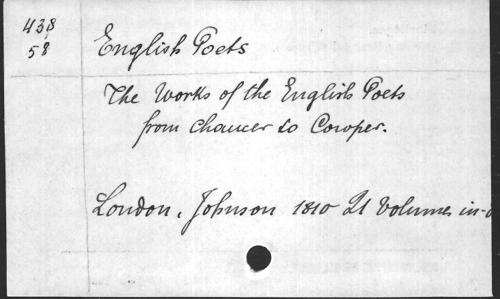 438
58
English Poets
The Works of the English Poets
from Chaucer to Cowper.
London, Johnson 1810 21 Volumes in-